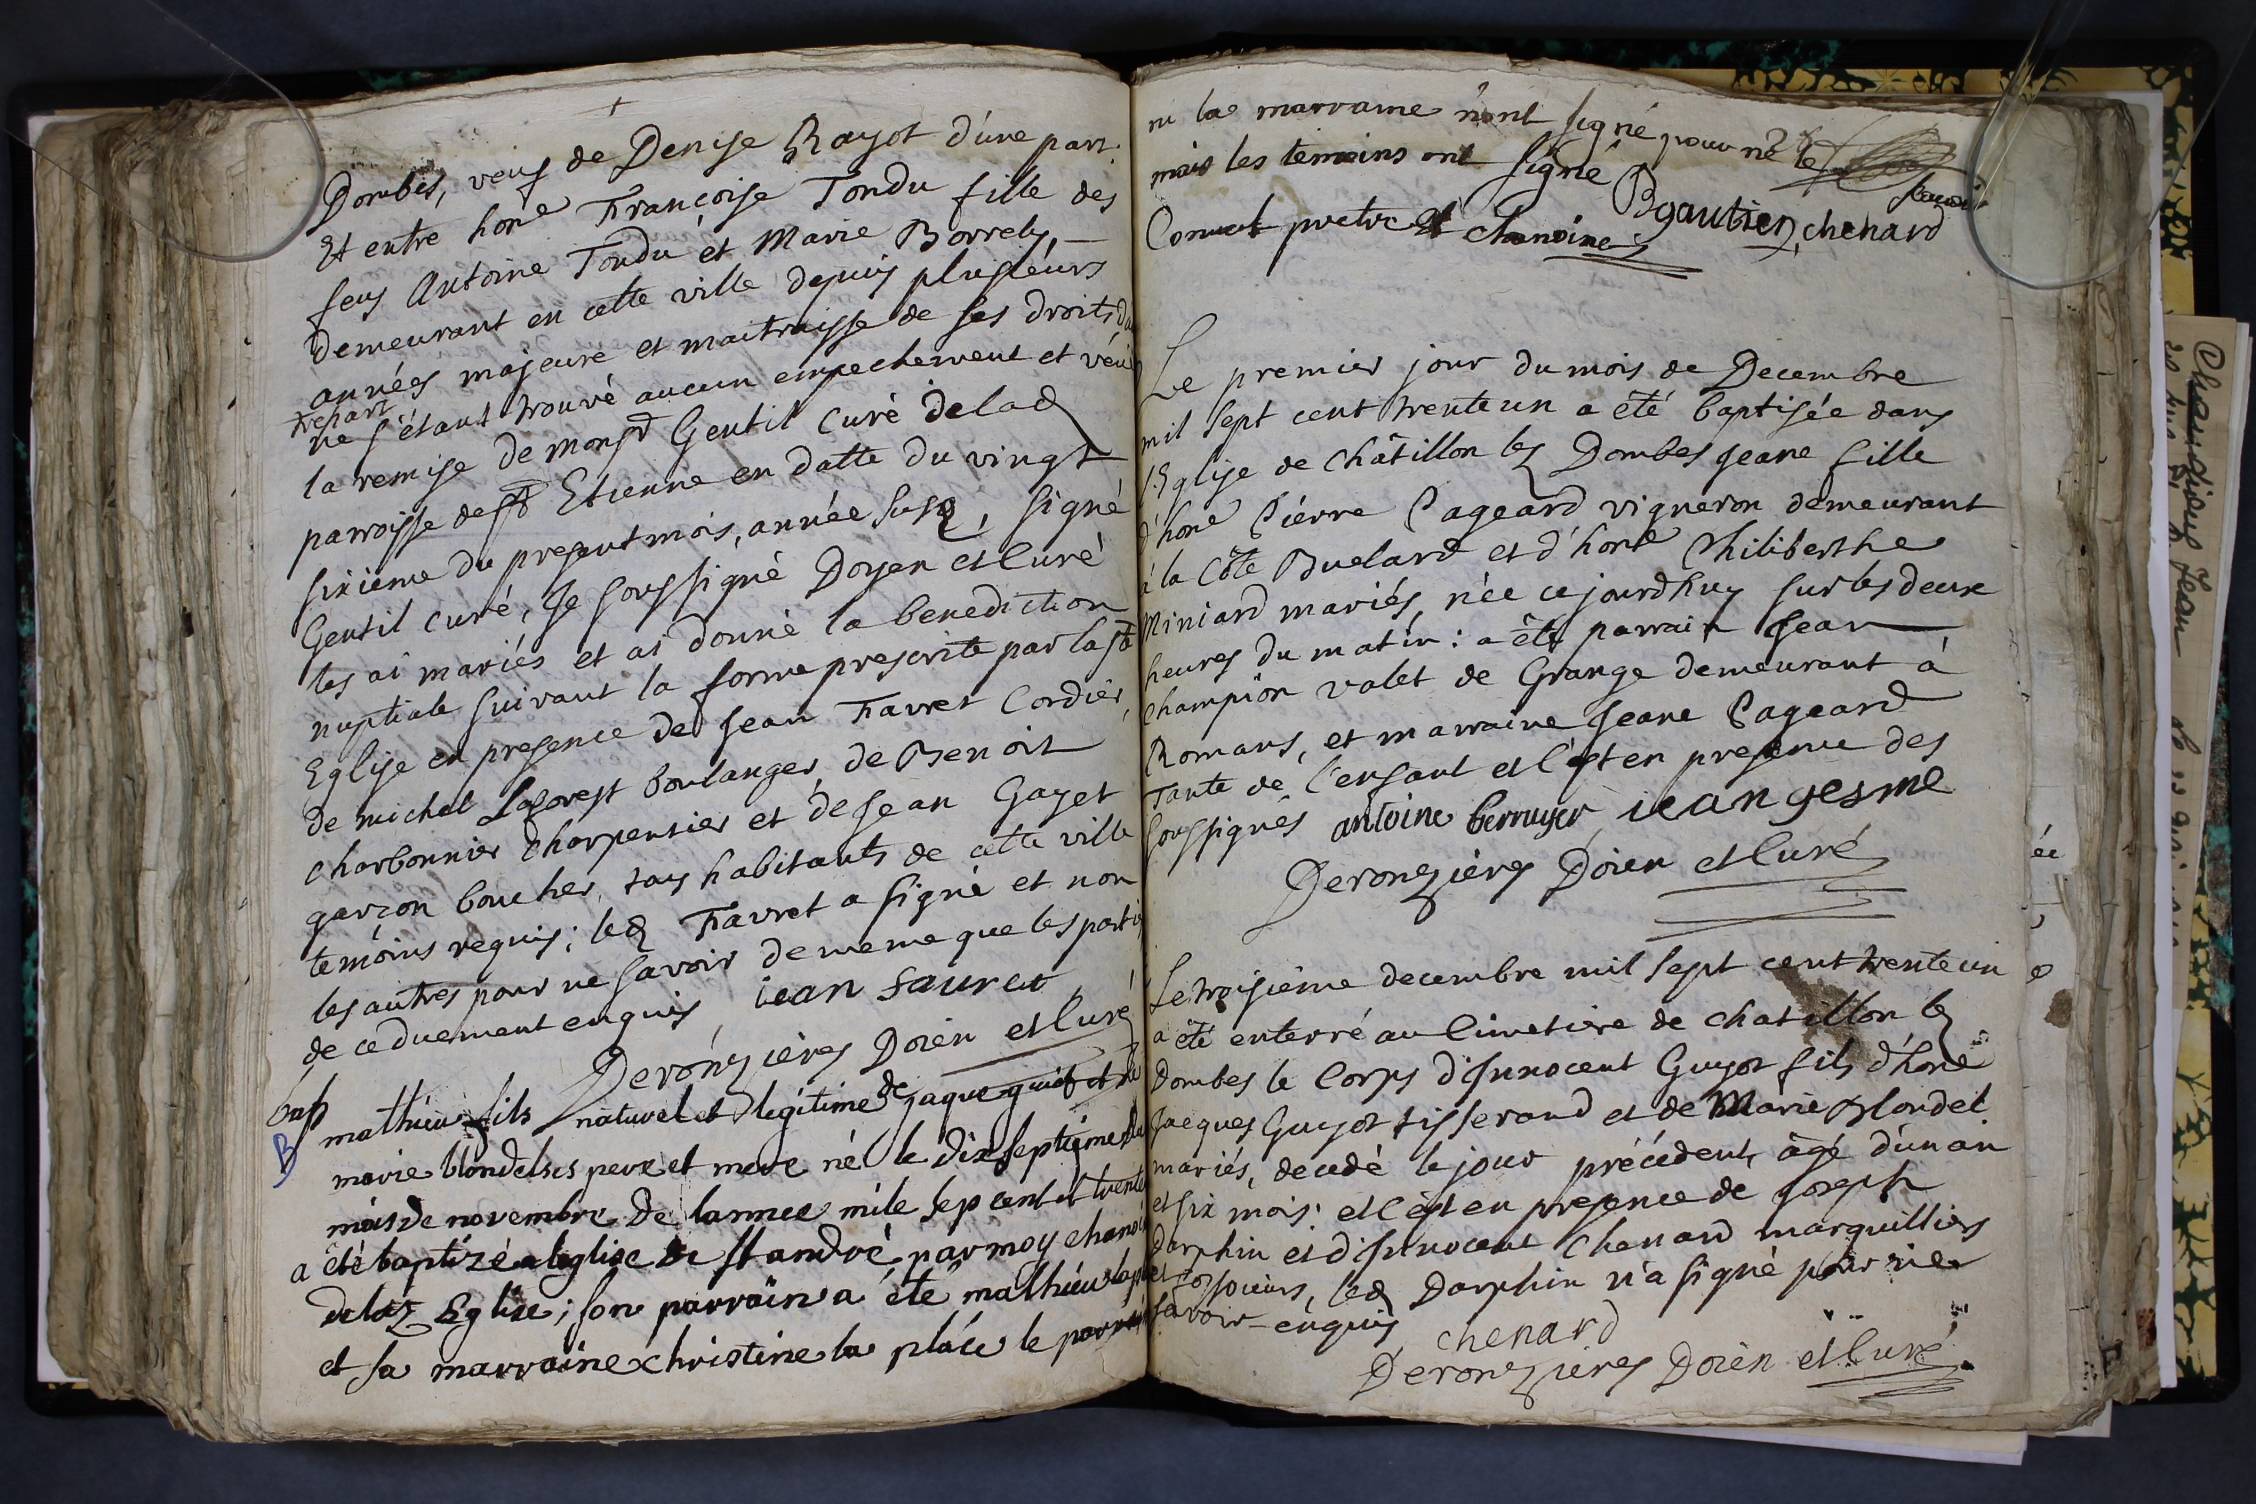 Dombes, veuf de Denise Rayot d'une part.
Et entre hone Françoise Tondu fille des
feus Antoine Tondu et Marie Borrely,
demeurant en cette ville depuis plusieurs
années majeure et maitraisse de ses droits d'au
tre part
ne s'étant trouvé aucun empechement et vëu
la remise de monsr Gentil Curé de lad
parroisse de St Etienne en datte du vingt
sixieme du present mois, année susd, signé
Gentil curé, Je soussigné Doyen et Curé
les ai mariés et ai donné la benediction
nuptiale suivant la forme prescrite par la Ste
Eglise en presence de Jean Favret Cordier,
de michel Laforest boulanger, de Benoit
charbonnier Charpentier et de Jean Gayet
garçon boucher, tous habitants de cette ville
temoins requis; led Favret a signé et non
les autres pour ne savoir de meme que les parties
de ce duement enquis jean fauret
Deronzieres Doien et Curé
bap
B
mathieu fils naturel et legitime de jaque guiot et de
marie blondel ses pere et mere né le dix septiéme du
mois de novembre de lannee mile sep cent et trente
a été baptizé a leglise de st andré par moy chanoi
de lad Eglise; son parrain a été mathieu
et sa marraine christine la pláce le parrain
ni la marraine n'ont signé pour ne le
savoir
mais les temoins ont signé Bgautier, chenard
Cornuet pretre et chanoine
Le premier jour du mois de Decembre
mil sept cent trente un a été baptisée dans
l'Eglise de Châtillon les Dombes Jeane fille
d'hone Piérre Pageard vigneron demeurant
à la Côte Buelard et d'hone Philiberthe
Miniard mariés, née cejourdhuy sur les deux
heures du matin: a été parrain Jean
Champion valet de Grange demeurant à
Romans, et marraine Jeane Pageard
Tante de l'enfant et c'est en presence des
soussignés antoine berruyer, jean gesme
Deronzieres Doien et Curé
Le troisième decembre mil sept cent trente un
a été enterré au Cimetiere de chatillon les
Dombes le Corps d'Innocent Guyot fils d'hone
Jacques Guyot tisserand et de Marie Blondel
mariés, decedé le jour précédent, âgé d'un an
et six mois: et c'est en presence de Joseph
Darphin et d'Innocent Chenard marguilliers
et fossoieurs, led Darphin n'a signé pour ne
savoir enquis chenard
Deronzieres Doien et Curé